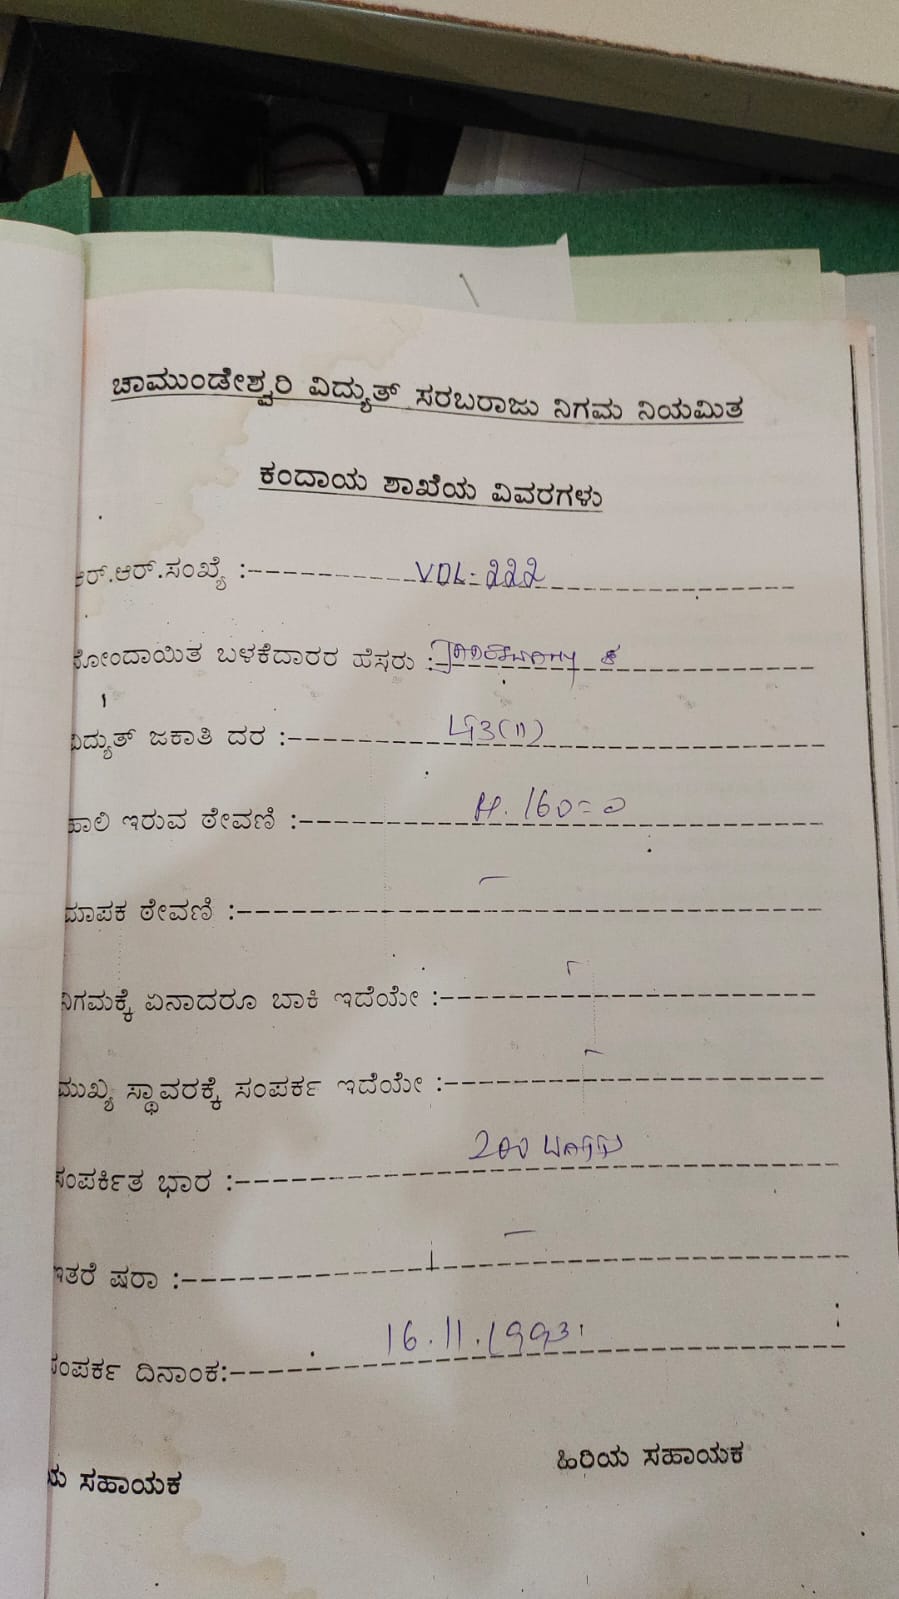 ಚಾಮುಂಡೇಶ್ವರಿ ವಿದ್ಯುತ್ ಸರಬರಾಜು ನಿಗಮ ನಿಯಮಿತ
ಕಂದಾಯ ಶಾಖೆಯ ವಿವರಗಳು
ಆರ್.ಆರ್.ಸಂಖ್ಯೆ :- VDL-222
ನೋಂದಾಯಿತ ಬಳಕೆದಾರರ ಹೆಸರು :-
ವಿದ್ಯುತ್ ಜಕಾತಿ ದರ :-
ಹಾಲಿ ಇರುವ ಠೇವಣಿ :- 160=0
ಮಾಪಕ ಠೇವಣಿ :- –
ನಿಗಮಕ್ಕೆ ಏನಾದರೂ ಬಾಕಿ ಇದೆಯೇ :- –
ಮುಖ್ಯ ಸ್ಥಾವರಕ್ಕೆ ಸಂಪರ್ಕ ಇದೆಯೇ :- –
ಸಂಪರ್ಕಿತ ಭಾರ :- 200
ಇತರೆ ಷರಾ :- –
ಸಂಪರ್ಕ ದಿನಾಂಕ:- 16.11.1993
ಸಹಾಯಕ ಹಿರಿಯ ಸಹಾಯಕ